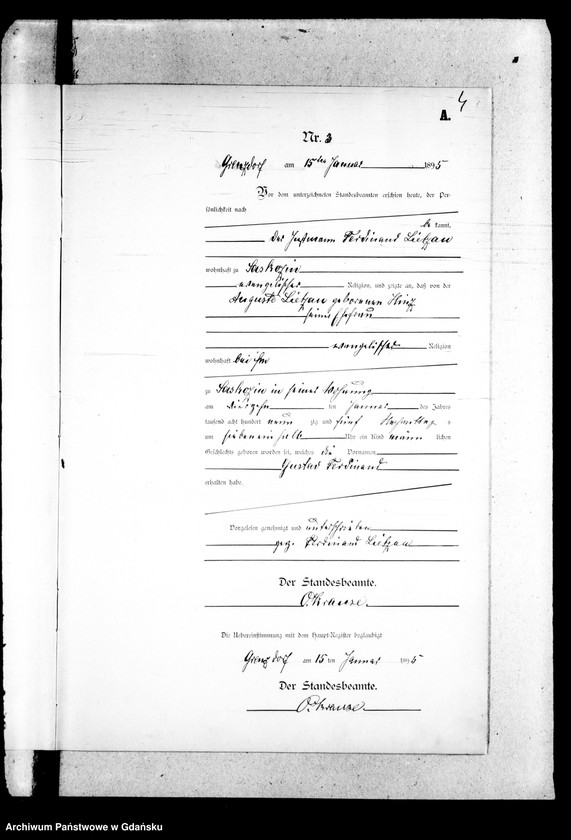 4
A.
Nr. 3
Grenzdorf am 15ten Januar 1895
Vor dem unterzeichneten Standesbeamten erschien heute, der Per-
sönlichkeit nach
be kannt,
der Instmann Ferdinand Lietzau
wohnhaft zu Saskozin
evangelischer Religion, und zeigte an, daß von der
Auguste Lietzau geborenen
seiner Ehefrau
evangelischer Religion
wohnhaft bei ihm
zu Saskozin in seiner Wohnung
am vierzehn ten Januar des Jahres
tausend acht hundert neun zig und fünf Nachmittags
um sieben ein halb Uhr ein Kind männ lichen
Geschlechts geboren worden sei, welches die Vornamen
Gustav Ferdinand
erhalten habe.
Vorgelesen genehmigt und unterschrieben
gez. Ferdinand Lietzau
Der Standesbeamte.
O. Krause.
Die Uebereinstimmung mit dem Haupt-Register beglaubigt
Grenzdorf am 15 ten Januar 1895
Der Standesbeamte.
O. Krause.
Archiwum Państwowe w Gdańsku